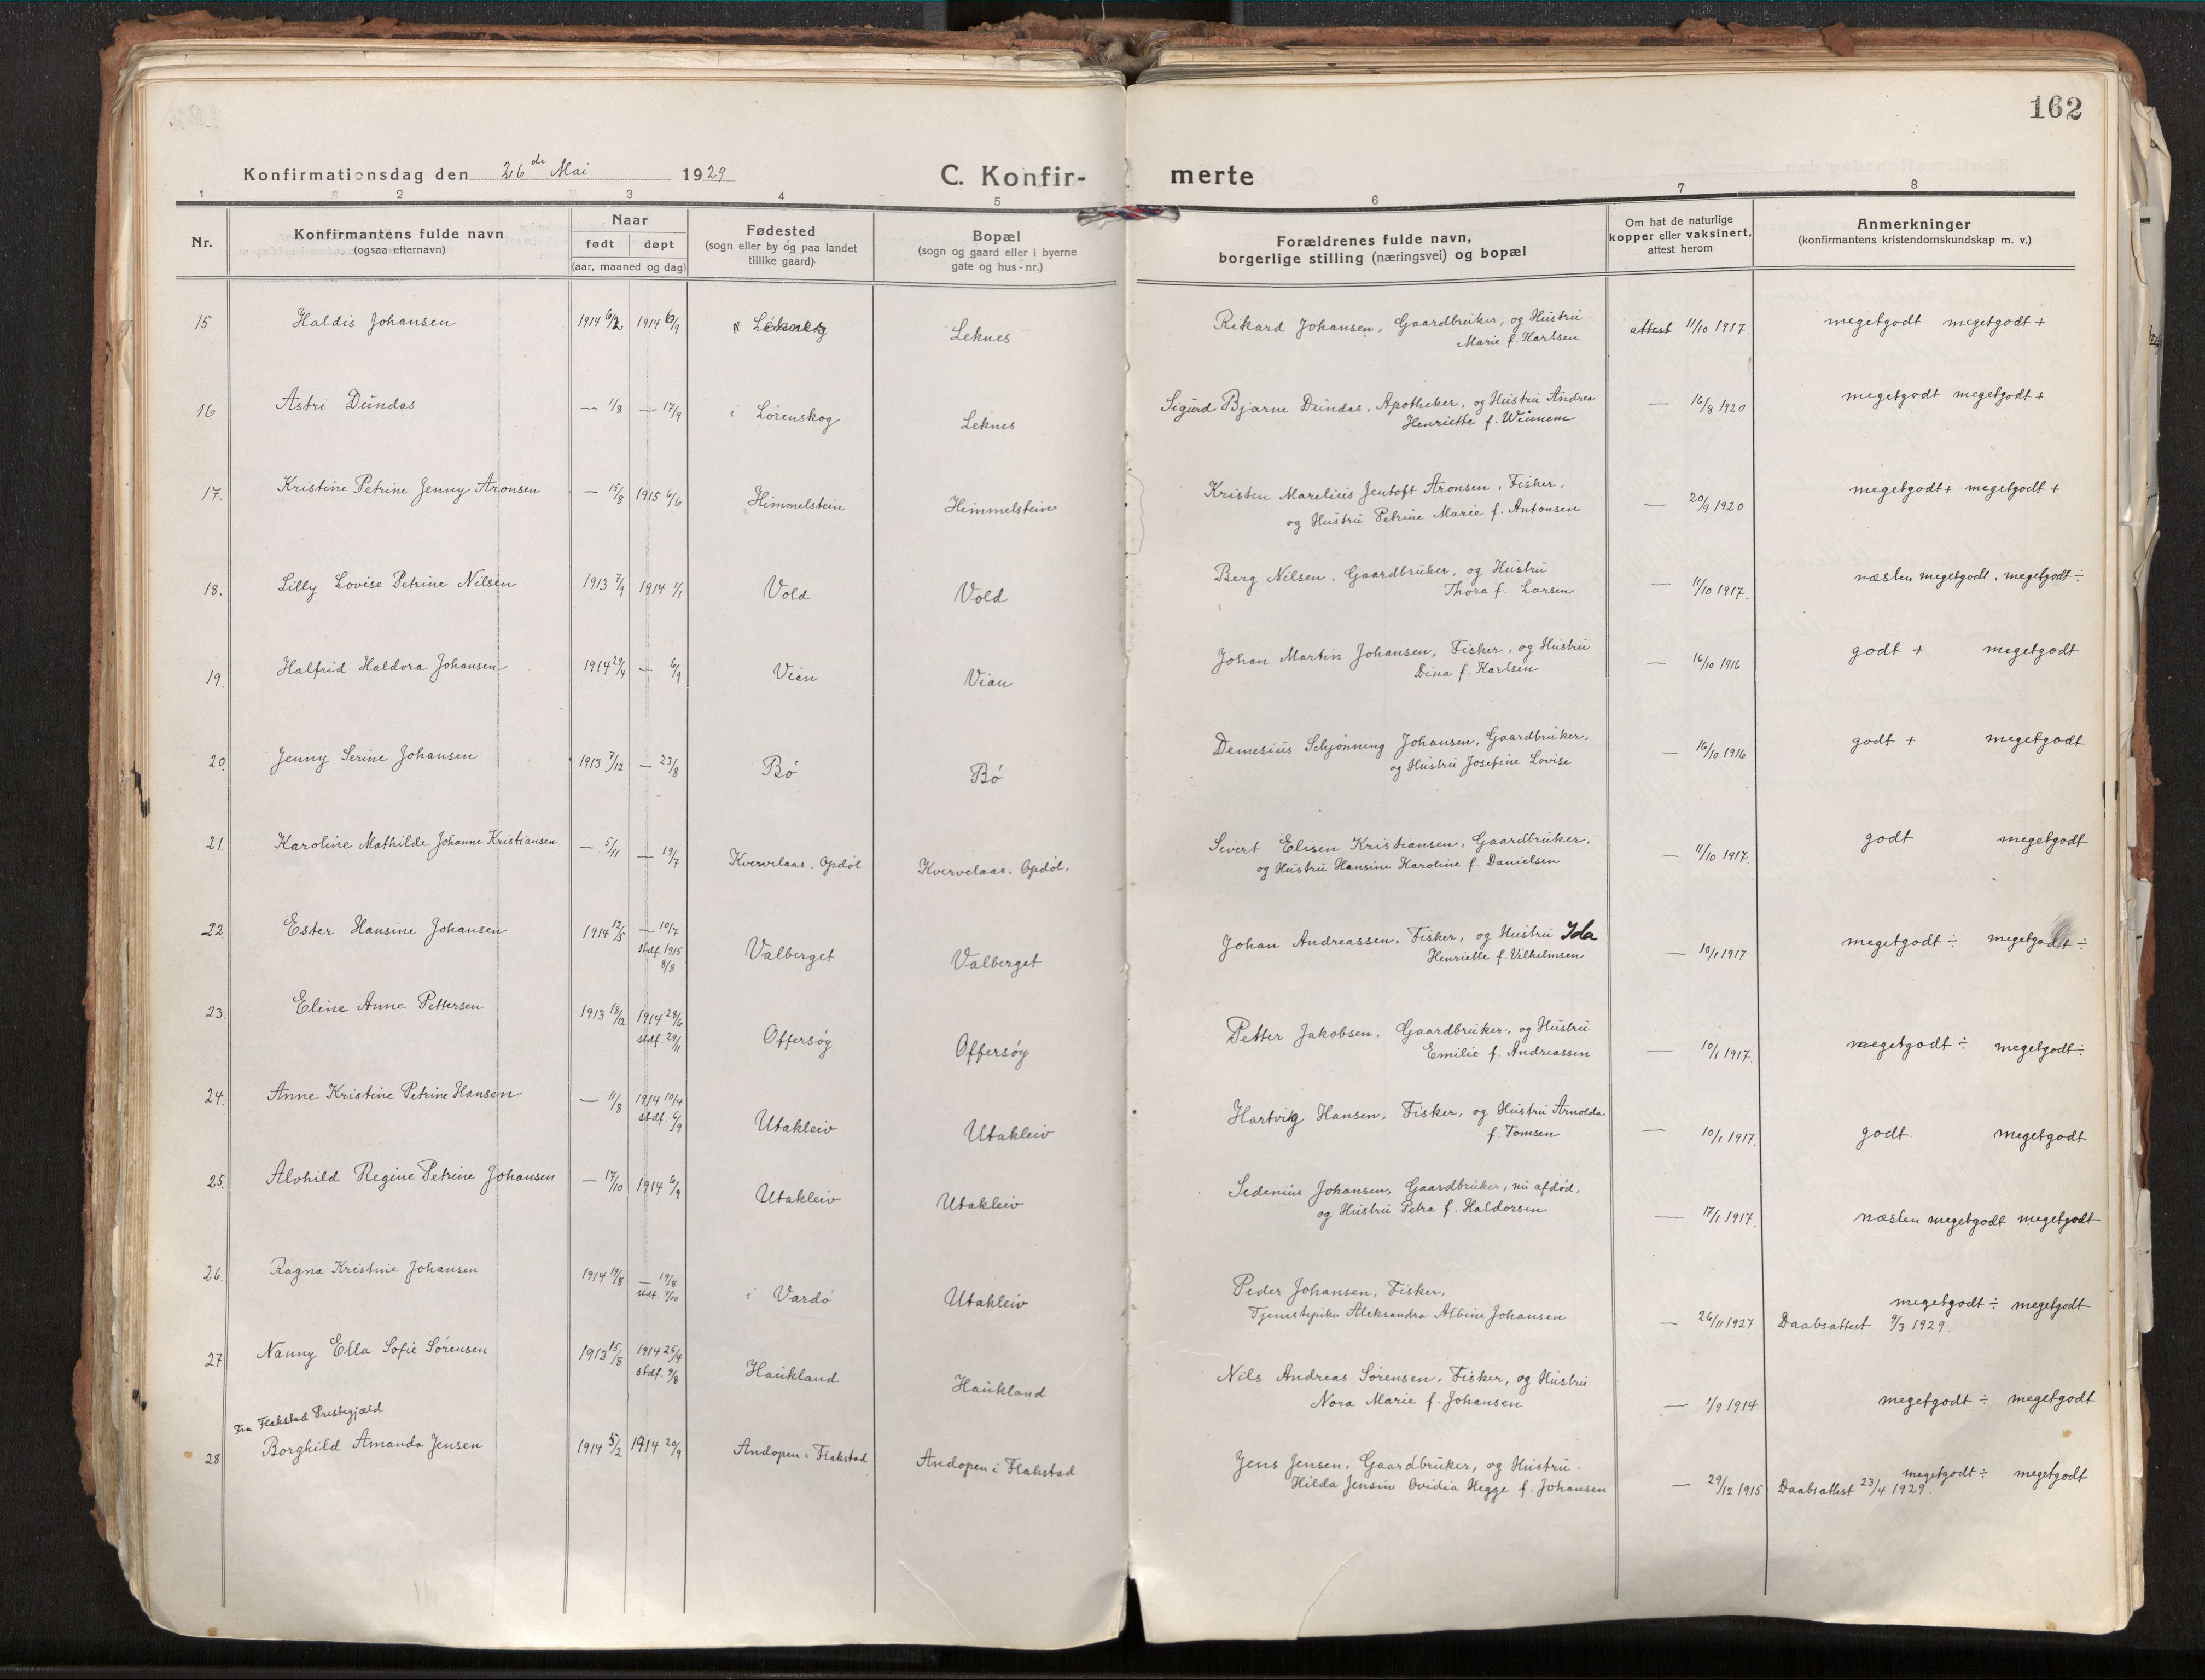 162
Konfirmationsdag den 26 de Mai 1929 C. Konfir- merte
1 2 3 4 5 6 7 8
Nr. Konfirmantens fulde navn (ogsaa efternavn) Naar født døpt (aar, maaned og dag) Fødested (sogn eller by og paa landet tillike gaard) Bopæl (sogn og gaard eller i byerne gate og hus-nr.) Forældrenes fulde navn, borgerlige stilling (næringsvei) og bopæl Om hat de naturlige kopper eller vaksinert, attest herom Anmerkninger (konfirmantens kristendomskundskap m. v.)
15. Haldis Johansen 1914 6/2 1914 6/9 Leknes Leknes Rikard Johansen, Gaardbruker, og Hustru attest 11/10 1917. megetgodt megetgodt +
Marie f. Karlsen
16 Astri Dundas — 1/8 — 17/9 i Lørenskog Leknes Sigurd Bjarne Dundas, Apotheker, og Hustru Andrea — 16/8 1920 megetgodt megetgodt +
Henriette f. Winnem
17. Kristine Petrine Jenny Aronsen — 15/8 1915 6/6 Himmelstein Himmelstein Kristen Marelius Jentoft Aronsen, Fisker, — 20/9 1920 megetgodt + megetgodt +
og Hustru Petrine Marie f. Antonsen
18. Lilly Lovise Petrine Nilsen 1913 7/9 1914 1/1 Vold Vold Berg Nilsen, Gaardbruker, og Hustru — 11/10 1917. næsten megetgodt, megetgodt ÷
Thora f. Larsen
19. Halfrid Haldora Johansen 1914 29/4 — 6/9 Vian Vian Johan Martin Johansen, Fisker, og Hustru — 16/10 1916 godt + megetgodt
Dina f. Karlsen
20. Jenny Serine Johansen 1913 7/12 — 23/8 Bö Bö Demesius Schjønning Johansen, Gaardbruker, — 16/10 1916 godt + megetgodt
og Hustru Josefine Lovise
21. Karoline Mathilde Johanne Kristiansen — 5/11 — 19/7 Kvervelaas, Opdöl Kvervelaas, Opdöl, Sivert Elisen Kristiansen, Gaardbruker, — 11/10 1917. godt megetgodt
og Hustru Hansine Karoline f. Danielsen
22 Ester Hansine Johansen 1914 12/5 — 10/7 Valberget Valberget Johan Andreassen, Fisker, og Hustru Ida — 10/1 1917 megetgodt ÷ megetgodt ÷
stdf. 1915 8/8 Henriette f. Vilhelmsen
23. Eline Anne Pettersen 1913 18/12 1914 28/6 Offersöy Offersöy Petter Jakobsen, Gaardbruker, og Hustru — 10/1 1917. megetgodt ÷ megetgodt ÷
stdf. 29/11 Emilie f. Andreassen
24. Anne Kristine Petrine Hansen — 11/8 1914 10/4 Utakleiv Utakleiv Hartvig Hansen, Fisker, og Hustru Arnolda — 10/1 1917. godt megetgodt
stdf. 6/9 f. Tomsen
25. Alvhild Regine Petrine Johansen — 17/10 1914 6/9 Utakleiv Utakleiv Sedenius Johansen, Gaardbruker, nu afdöd, — 17/1 1917. næsten megetgodt megetgodt
og Hustru Petra f. Haldorsen
26. Ragna Kristine Johansen 1914 19/8 — 19/8 i Vardö Utakleiv Peder Johansen, Fisker, — 26/11 1927 megetgodt ÷ megetgodt
stdf. 7/10 Tjenestepike Aleksandra Albine Johansen Daabsattest 9/3 1929.
27 Nanny Ella Sofie Sörensen 1913 15/8 1914 26/4 Haukland Haukland Nils Andreas Sörensen, Fisker, og Hustru — 1/9 1914 megetgodt ÷ megetgodt
stdf. 9/8 Nora Marie f. Johansen
Fra Flakstad Prestegjæld
28 Borghild Amanda Jensen 1914 5/2 1914 20/9 Andopen i Flakstad Andopen i Flakstad Jens Jensen, Gaardbruker, og Hustru — 29/12 1915 megetgodt ÷ megetgodt
Hilda Jensine Ovidia Hegge f. Johansen Daabsattest 23/4 1929.